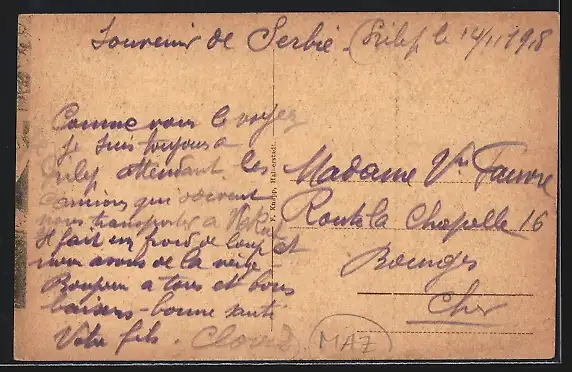 Souvenir de Serbie. Prilep le 14/11 1918
Comme vous le voyez
je suis toujours a
Prilep attendant les
camions qui doivent
nous transporter a
Il fait un froid de loup et
nous avons de la neige
Bonjour a tous et bons
baisers - bonne santé
Votre fils.
Knapp, Halberstadt.
Madame Vve Fauvre
Route la Chapelle 16
Bourges
Cher
MAZ